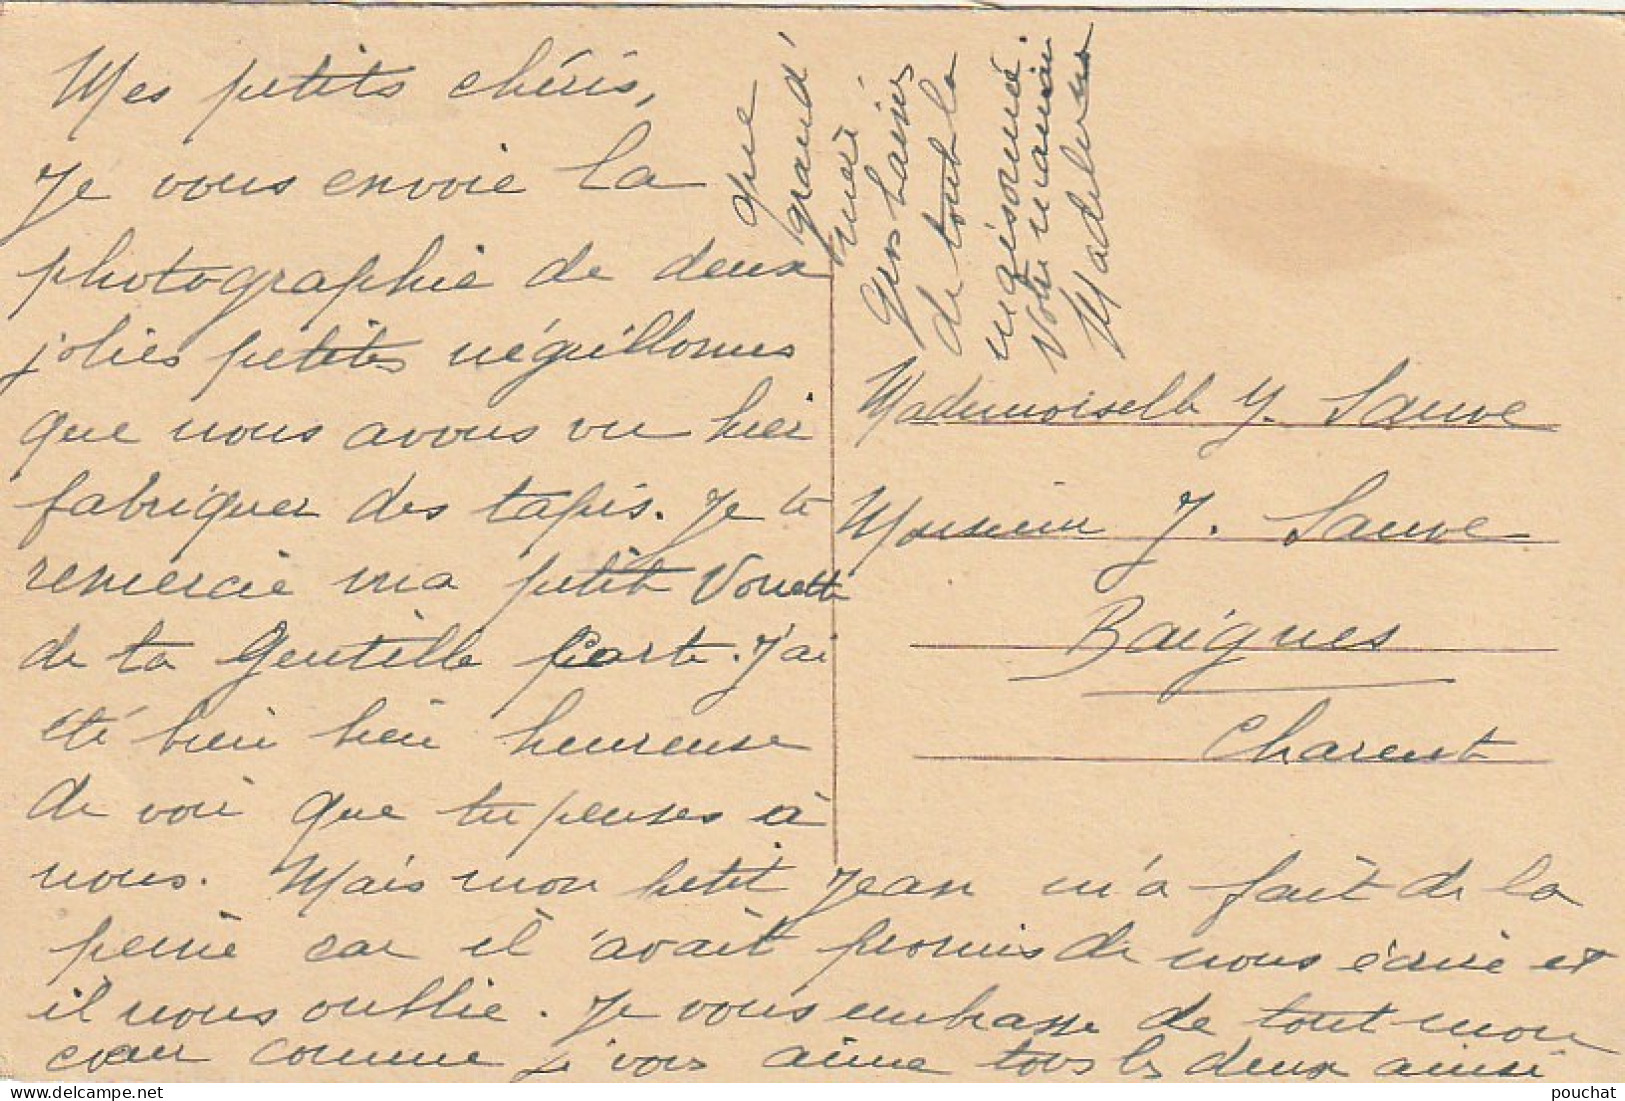 Mes petits chéris,
Je vous envoie la
photographie de deux
jolies petites
que nous avons vu hier
fabriquer des tapis. Je te
remercie ma petite Vonette
de ta gentille carte. J'ai
été bien bien heureuse
de voir que tu penses à
nous. Mais mon petit Jean m'a fait de la
peine car il avait promis de nous écrire et
il nous oublie. Je vous embrasse de tout mon
cœur comme je vous aime tous les deux ainsi
que
grand'
mère
Gros baisers
de toute la
maisonnée.
Votre mamie
Mademoiselle Y. Sauve
Monsieur J. Sauve
Baignes
Charente
pouchat